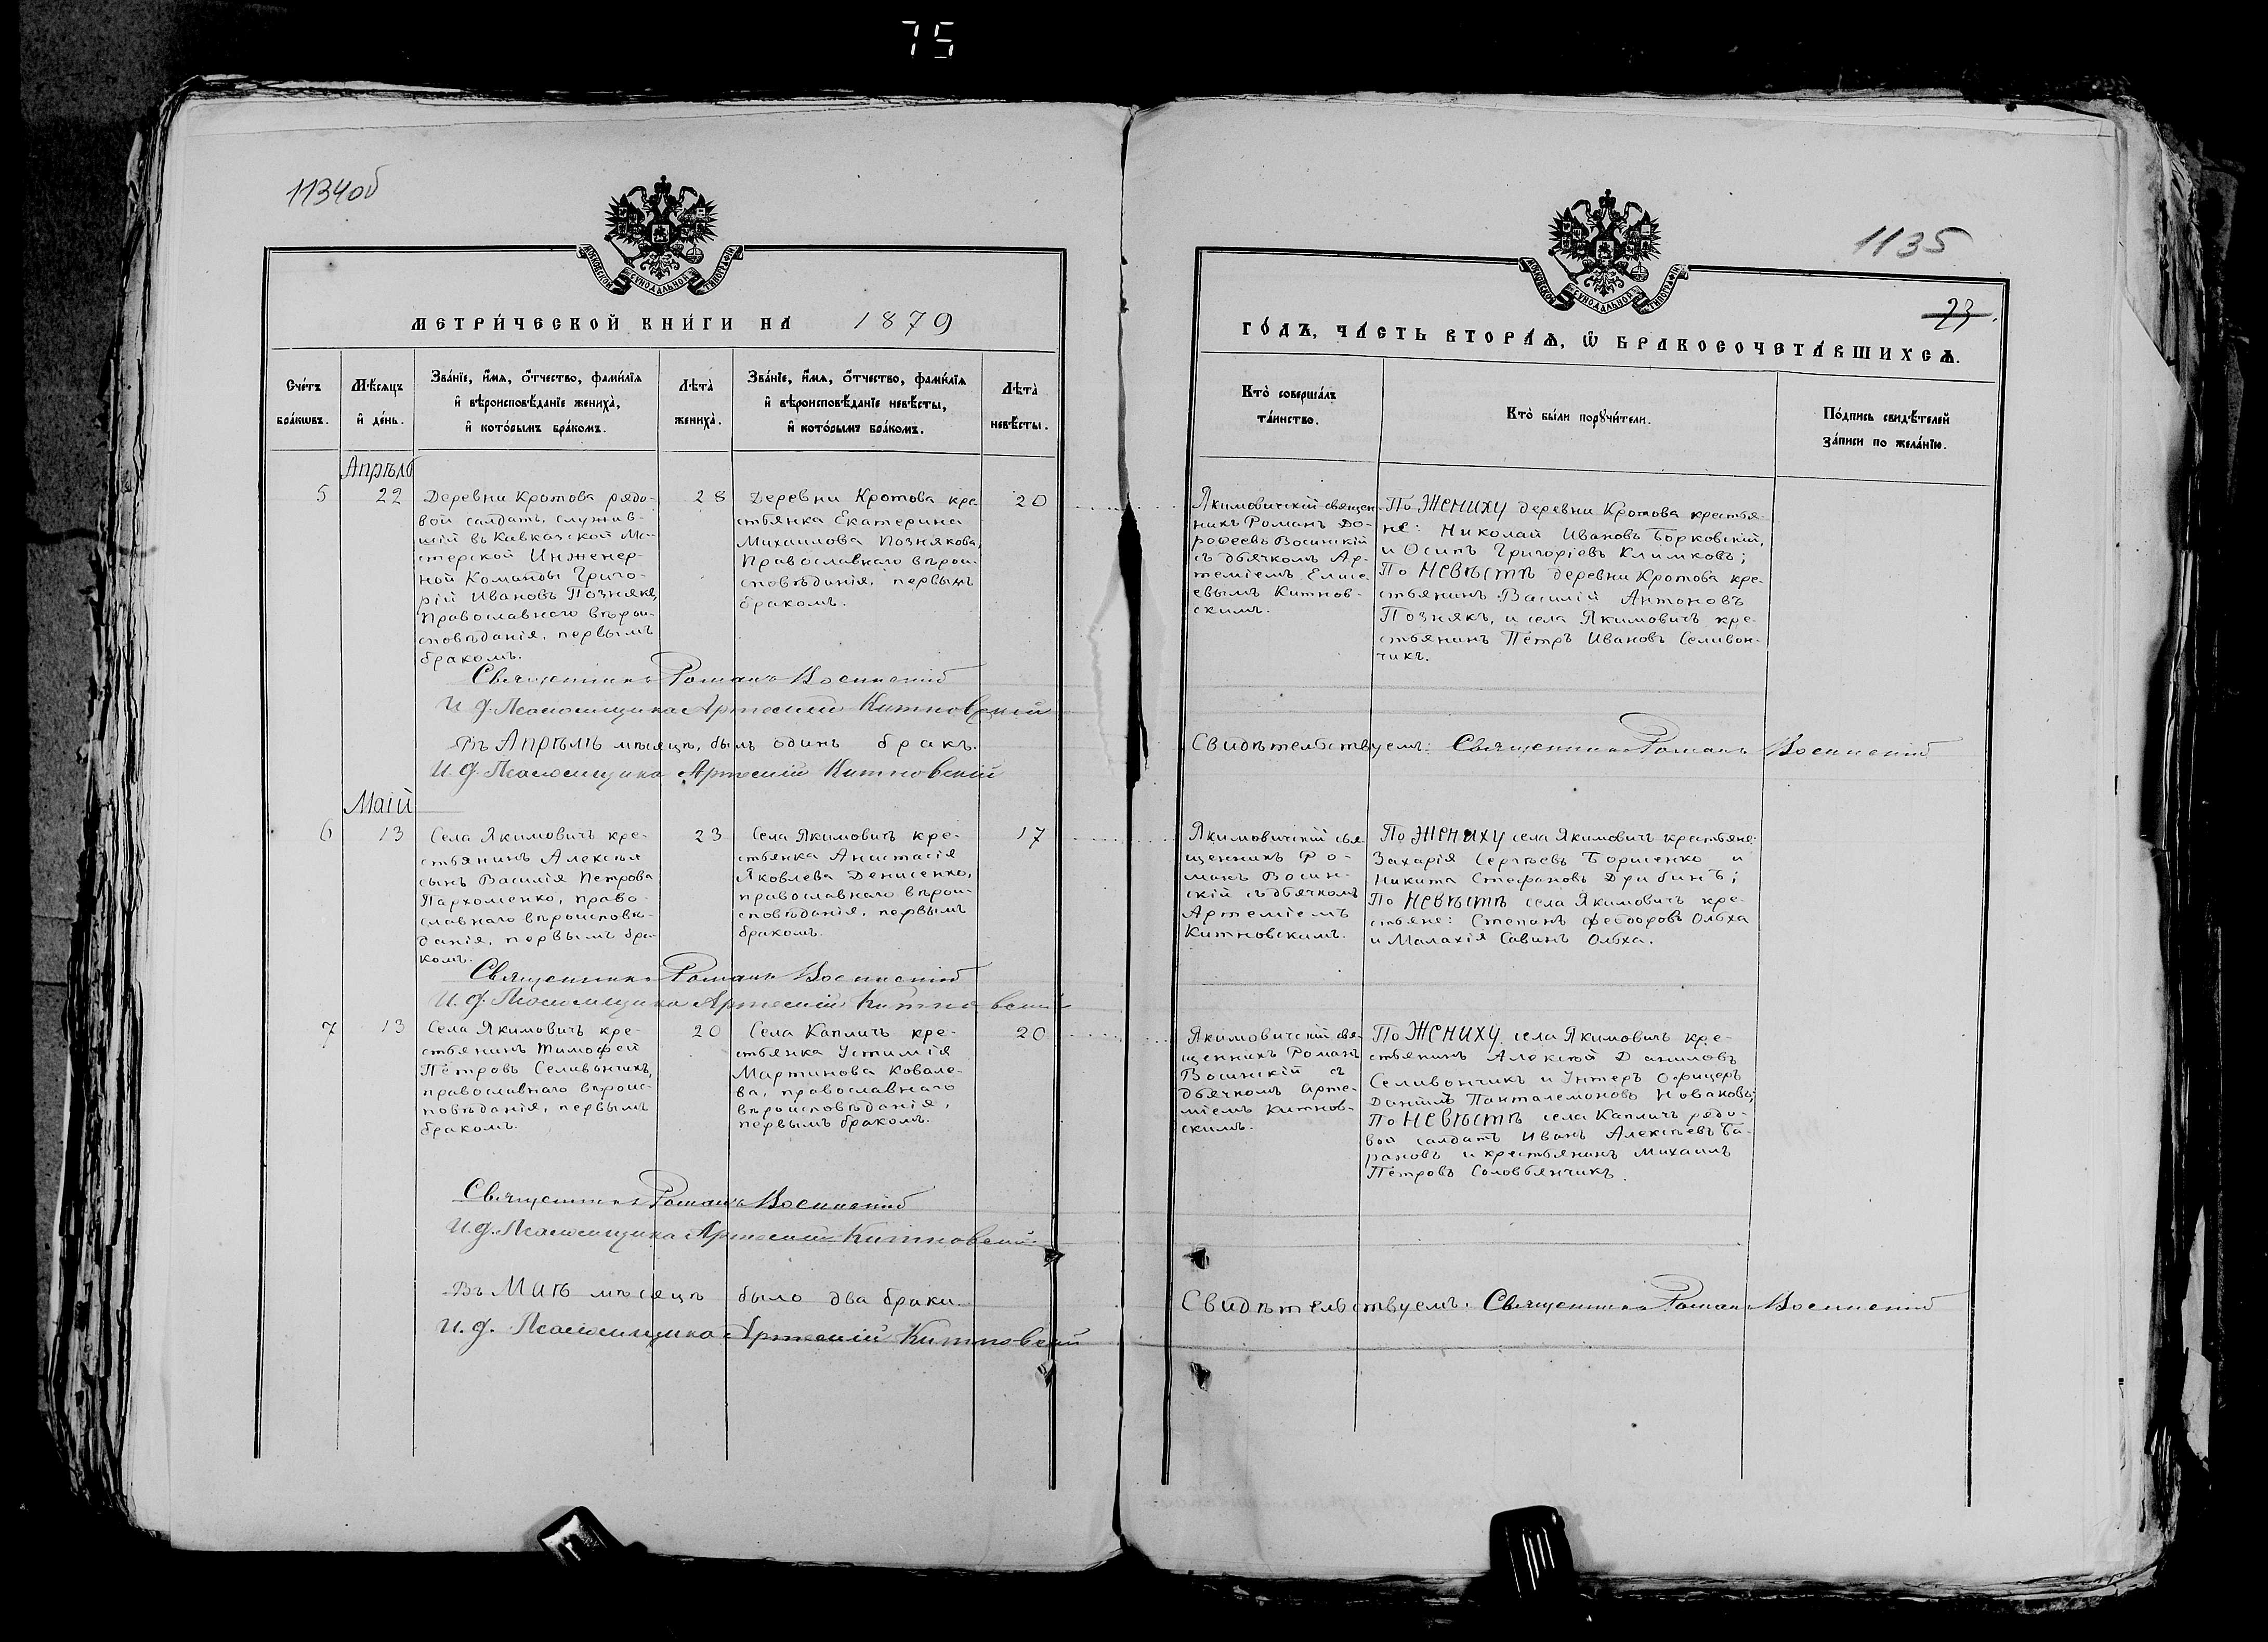 75
1134об
МОСКОВСКОЙ СѴНОДАЛЬНОЙ ТИПОГРАФІИ
МЕТРИ́ЧЕСКОЙ КНИ́ГИ НА 1879
Сче́тъ бра́кωвъ.
Мѣ́сяцъ и҆ де́нь.
Зва́нїе, и҆́мя, ѻ҆́тчество, фами́лїя
и҆ вѣроисповѣ́данїе жениха̀,
и҆ кото́рымъ бра́комъ.
Лѣта̀ жениха̀.
Зва́нїе, и҆́мя, ѻ҆́тчество, фами́лїя
и҆ вѣроисповѣ́данїе невѣ́сты,
и҆ кото́рымъ бра́комъ.
Лѣта̀ невѣ́сты.
Апрѣль
5
22
Деревни Кротова рядо-
вой салдатъ, служив-
шій въ Кавказской Ма-
стерской Инженер-
ной Команды Григо-
рій Ивановъ Познякъ,
православнаго вѣрои-
сповѣданія, первымъ
бракомъ.
28
Деревни Кротова кре-
стьянка Екатерина
Михаилова Познякова,
Православнаго вѣрои-
сповѣданія, первымъ
бракомъ.
20
Священникъ Романъ Восинскій
И. д. Псаломщика Артемій Китновскій
Въ Апрѣлѣ мѣсяцѣ, былъ одинъ бракъ.
И. д. Псаломщика Артемій Китновскій
Маій
6
13
Села Якимовичъ кре-
стьянинъ Алексѣя
сынъ Василія Петрова
Пархоменко, право-
славнаго вѣроисповѣ-
данія, первымъ бра-
комъ.
23
Села Якимовичъ кре-
стьянка Анастасія
Яковлева Денисенко,
православнаго вѣрои-
сповѣданія, первымъ
бракомъ.
17
Священникъ Романъ Восинскій
И. д. Псаломщика Артемій Китновскій
7
13
Села Якимовичъ кре-
стьянинъ Тимофей
Петровъ Селивончикъ,
православнаго вѣроис-
повѣданія, первымъ
бракомъ.
20
Села Капличъ кре-
стьянка Устимія
Мартинова Ковале-
ва, православнаго
вѣроисповѣданія,
первымъ бракомъ.
20
Священникъ Романъ Восинскій
И. д. Псаломщика Артемій Китновскій
Въ Маѣ мѣсяцѣ было два брака.
И. д. Псаломщика Артемій Китновскій
1135
МОСКОВСКОЙ СѴНОДАЛЬНОЙ ТИПОГРАФІИ
23.
ГО́ДЪ, ЧА́СТЬ ВТОРА́Ѧ, Ѽ БРАКОСОЧЕТА́ВШИХСѦ.
Кто̀ соверша́лъ
та́инство.
Кто̀ бы́ли порꙋчи́тели.
По́дпись свидѣ́телей
за́писи по жела́нїю.
Якимовичскій священ-
никъ Романъ До-
рофеевъ Восинскій
съ дьячкомъ Ар-
теміемъ Елисе-
евымъ Китнов-
скимъ.
По Жениху деревни Кротова крестья-
не: Николай Ивановъ Борковский,
и Осипъ Григоріевъ Климковъ;
По Невѣстѣ деревни Кротова кре-
стьянинъ Василій Антоновъ
Познякъ, и села Якимовичъ кре-
стьянинъ Петръ Ивановъ Селивон-
чикъ.
Свидѣтельствуемъ: Священникъ Романъ Восинскій
Якимовичскій свя-
щенникъ Ро-
манъ Восин-
скій съ дьячкомъ
Артеміемъ
Китновскимъ.
По Жениху села Якимовичъ крестьяне:
Захарія Сергѣевъ Борисенко и
Никита Стефановъ Дрибинъ;
По Невѣстѣ села Якимовичъ кре-
стьяне: Степанъ Феодоровъ Ольха
и Малахія Савинъ Ольха.
Якимовичскій свя-
щенникъ Романъ
Восинскій съ
дьячкомъ Арте-
міемъ Китнов-
скимъ.
По Жениху села Якимовичъ кре-
стьянинъ Алексѣй Даниловъ
Селивончикъ и Унтеръ Офицеръ
Даніилъ Панталемоновъ Новаковъ;
По Невѣстѣ села Капличъ рядо-
вой салдатъ Иванъ Алексѣевъ Ба-
рановъ и крестьянинъ Михаилъ
Петровъ Соловьянчикъ.
Свидѣтельствуемъ: Священникъ Романъ Восинскій